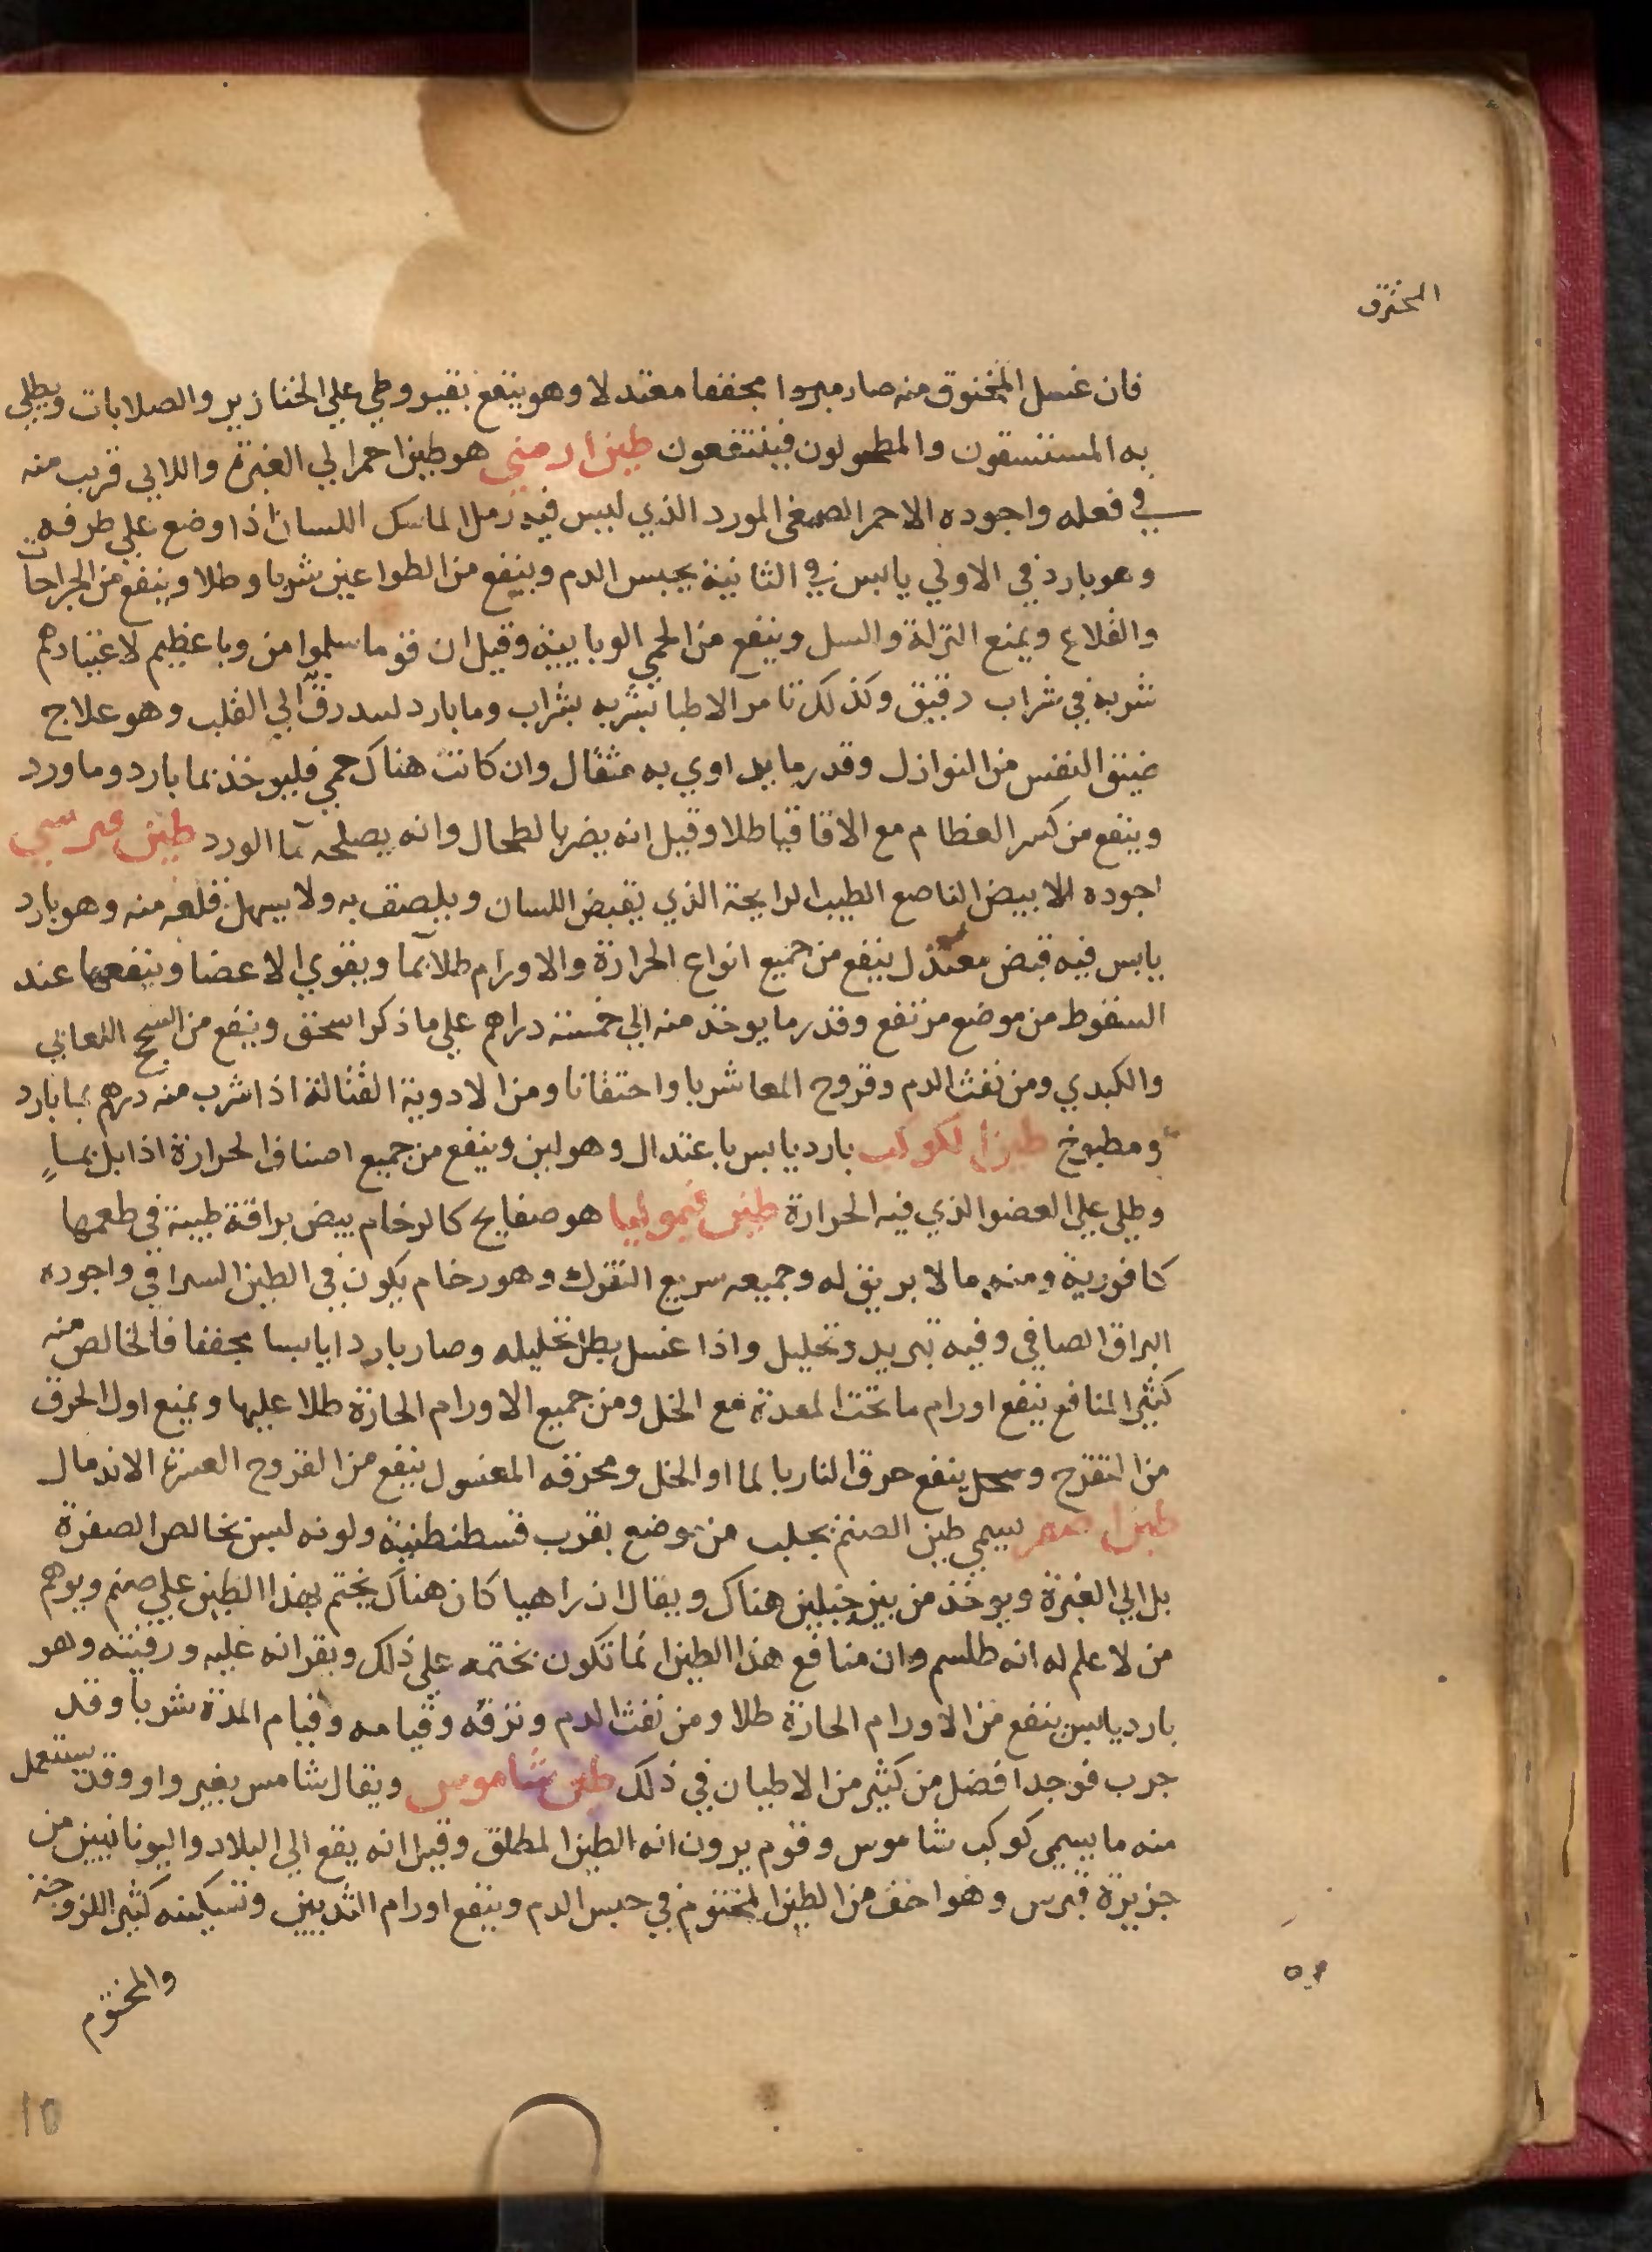 المحترق
فان غسل المحروق منه صار مبردا مجففا معتدلا وهو ينفع بقيروطي علي الخنازير والصلابات ويطلي
به المستسقون والمطحولون فينتفعون طين ارمني هو طين احمر الي الغبرة واللاني قريب منه
في فعله واجوده الاحمر الصمغى المورد الذي ليس فيه رمل الماسك اللسان اذا وضع علي طرفه
وهو بارد في الاولي يابس في الثانية يحبس الدم وينفع من الطواعين شربا وطلا وينفع من الجراحات
والقلاع ويمنع النزلة والسل وينفع من الحمي الوباييه وقيل ان قوما سلموا من وبا عظيم لاعتيادهم
شربه في شراب رقيق وكذلك تامر الاطبا بشربه بشراب وما بارد ليبدرقه الي القلب وهو علاج
ضيق النفس من النوازل وقدر ما يداوي به مثقال وان كانت هناك حمي فليوخذ بما بارد وما ورد
وينفع من كسر العظام مع الاقاقيا طلا وقيل انه يضر بالطحال وانه يصلحه ما الورد طين قبرسي
اجوده الابيض الناصع الطيب الرايحة الذي يقبض اللسان ويلصق به ولا يسهل قلعه منه وهو بارد
يابس فيه قبض معتدل ينفع من جميع انواع الحرارة والاورام طلا بما ويقوي الاعضا وينفعها عند
السقوط من موضع مرتفع وقدر ما يوخذ منه الي خمسة دراهم علي ما ذكر اسحق وينفع من السحج اللعابي
والكبدي ومن نفث الدم وقروح المعا شربا واحتقانا ومن الادوية القتالة اذا شرب منه درهم بما بارد
ومطبوخ طين الكوكب بارد يابس باعتدال وهو لين وينفع من جميع اصناف الحرارة اذا بل بماءٍ
وطلي علي العضو الذي فيه الحرارة طين قيموليا هو صفايح كالرخام بيض براقة طيبة في طعمها
كافورية ومنه ما لا بريق له وجميعه سريع التفرك وهو رخام يكون في الطين السيرافي واجوده
البراق الصافي وفيه تبريد وتحليل واذا غسل بطل تحليله وصار باردا يابسا مجففا فالخالص منه
كثير المنافع ينفع اورام ما تحت المعدة مع الخل ومن جميع الاورام الحارة طلا عليها ويمنع اول الحرق
من التقرح وينفع حرق النار بالما او الخل ومحرقه المغسول ينفع من القروح العسرة الاندمال
طين اصفر يسمي طين الصنم يجلب من موضع بقرب قسطنطنية ولونه ليس بخالص الصفرة
بل الي الغبرة ويوخذ من بين جبلين هناك ويقال ان راهبا كان هناك يختم بهذا الطين علي صنم ويوهم
من لا علم له انه طلسم وان منافع هذا الطين انما تكون بختمه علي ذلك وبقرانه عليه ورقيته وهو
بارد يابس ينفع من الاورام الحارة طلا ومن نفث الدم ونزفه وقيامه وقيام المدة شربا وقد
جرب فوجد افضل من كثير من الاطيان في ذلك طين شاموس ويقال شامس بغير واو وقد يستعمل
منه ما يسمي كوكب شاموس وقوم يرون انه الطين المطلق وقيل انه يقع الي البلاد واليونانيين من
جزيرة قبرس وهو اخف من الطين المختوم في حبس الدم وينفع اورام الثديين وتسكينه كثير اللزوجة
والمختوم
10